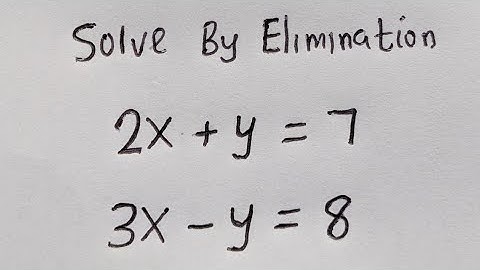 Solve By Elimination
2x + y = 7
3x - y = 8